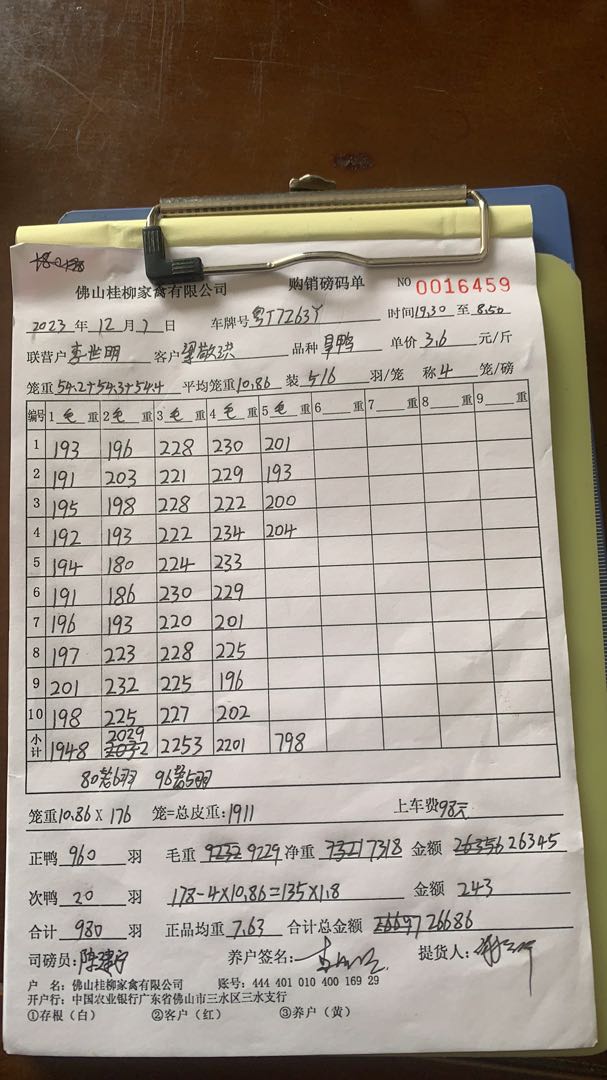 佛山桂柳家禽有限公司 购销磅码单 NO 0016459
2023年12月7日 车牌号粤J7263Y 时间19.30至8.50
联营户李世明 客户梁敬洪 品种旱鸭 单价3.6元/斤
笼重54.2+54.3+54.4 平均笼重10.86 装5/6羽/笼 称4笼/磅
编号 1毛重 2毛重 3毛重 4毛重 5毛重 6重 7重 8重 9重
1 193 196 228 230 201
2 191 203 221 229 193
3 195 198 228 222 200
4 192 193 222 234 204
5 194 180 224 233
6 191 186 230 229
7 196 193 220 201
8 197 223 228 225
9 201 232 225 196
10 198 225 227 202
小计 1948 2032 2029 2253 2201 798
80笼6羽 96笼5羽
笼重10.86×176笼=总皮重:1911 上车费98元
正鸭960羽 毛重9232 9229净重7321 7318金额26356 26345
次鸭20羽 178-4×10.86=135×1.8 金额243
合计980羽 正品均重7.63 合计总金额26697 26686
司磅员: 养户签名: 提货人:
户 名: 佛山桂柳家禽有限公司 账号: 444 401 010 400 169 29
开户行: 中国农业银行广东省佛山市三水区三水支行
①存根（白） ②客户（红） ③养户（黄）